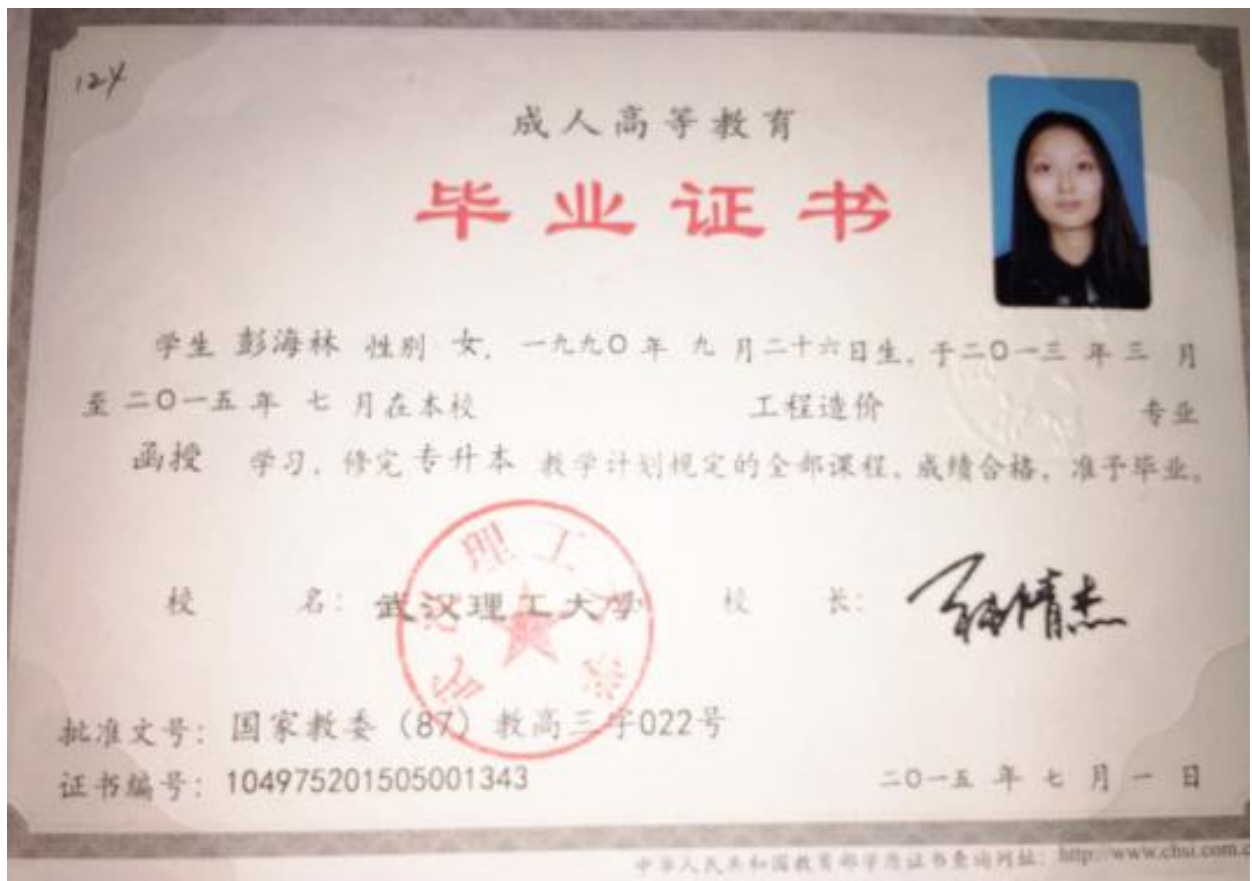 124
成人高等教育
毕业证书
学生 彭海林 性别 女，一九九〇年 九 月二十六日生，于二〇一三 年 三 月
至 二〇一五 年 七 月在本校 工程造价 专业
函授 学习，修完 专升本 教学计划规定的全部课程，成绩合格，准予毕业。
校 名：武汉理工大学 校 长：
批准文号：国家教委（87）教高三字022号
证书编号：104975201505001343 二〇一五 年 七 月 一 日
中华人民共和国教育部学历证书查询网址：http://www.chsi.com.c